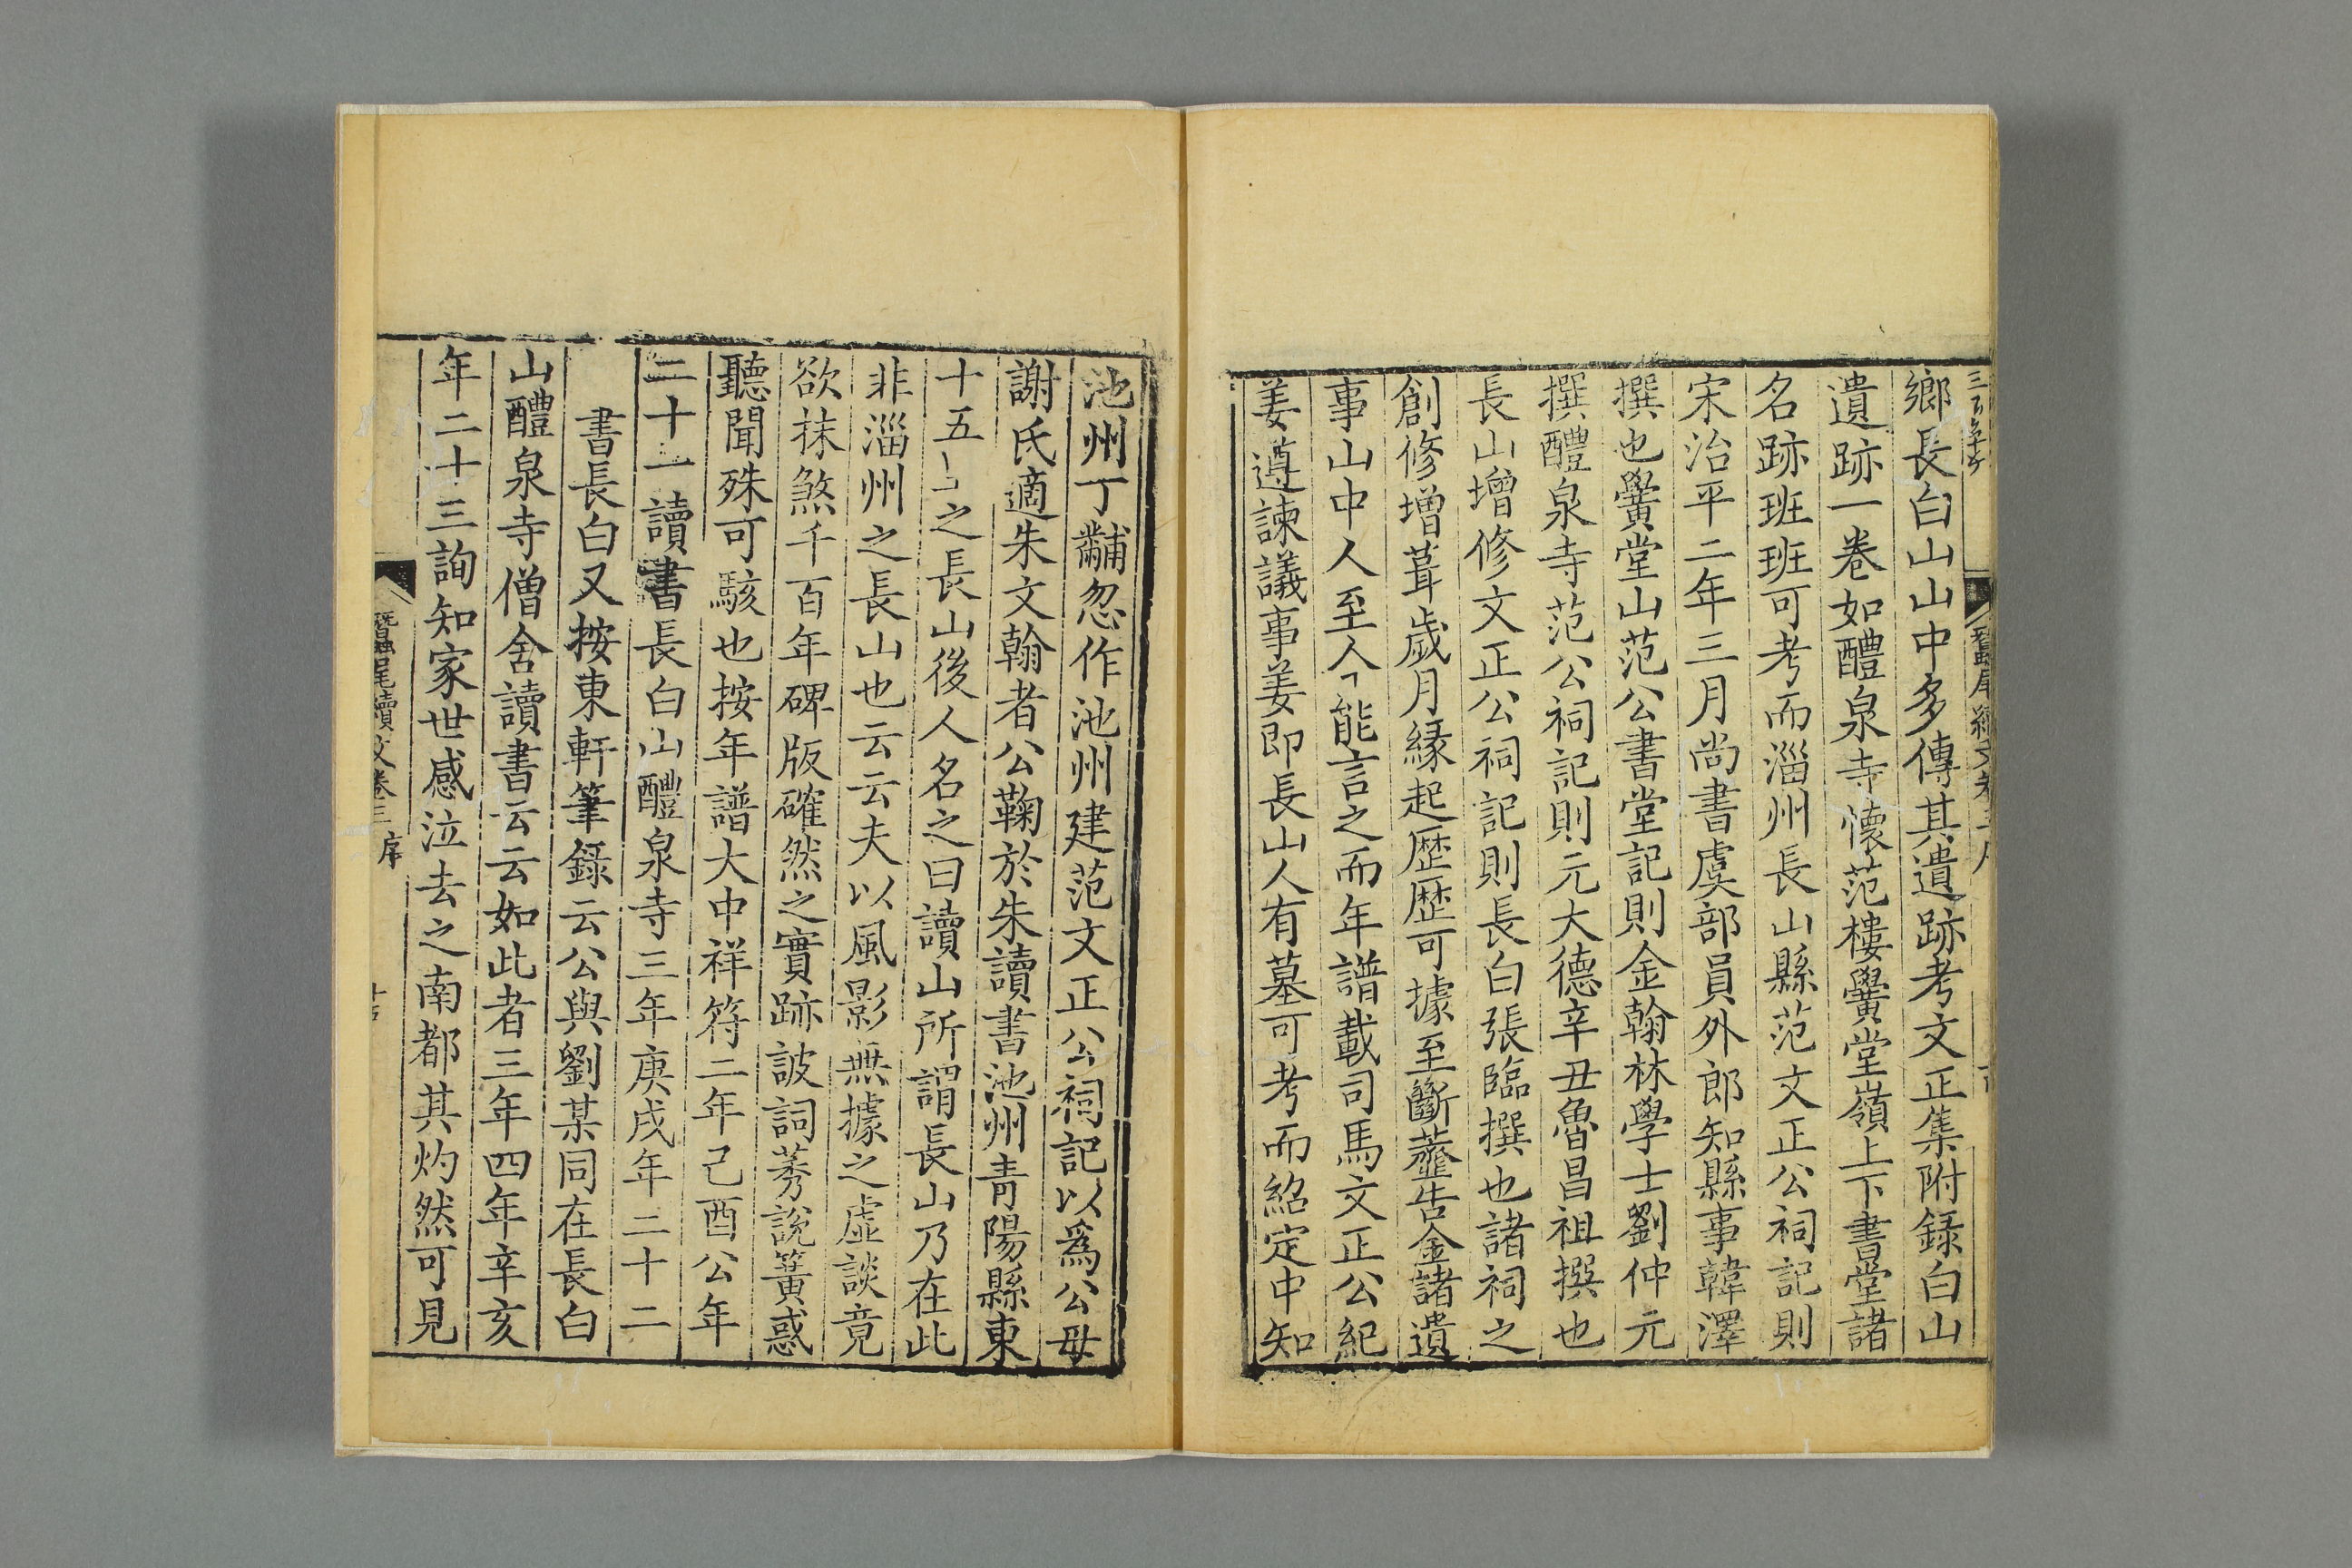 鄉長白山山中多傳其遺跡考文正集附録白山
遺跡一卷如醴泉寺懷范樓黌堂嶺上下書堂諸
名跡班班可考而淄州長山縣范文正公祠記則
宋治平二年三月尚書虞部員外郎知縣事韓澤
撰也黌堂山范公書堂記則金翰林學士劉仲元
撰醴泉寺范公祠記則元大德辛丑魯昌祖撰也
長山增修文正公祠記則長白張臨撰也諸祠之
創修增葺歲月縁起歷歷可據至斷虀告金諸遺
事山中人至今能言之而年譜載司馬文正公紀
姜遵諫議事姜即長山人有墓可考而紹定中知
池州丁黼忽作池州建范文正公祠記以爲公母
謝氏適朱文翰者公鞠於朱讀書池州青陽縣東
十五之長山後人名之曰讀山所謂長山乃在此
非淄州之長山也云云夫以風影無據之虛談竟
欲抹煞千百年碑版確然之實跡詖詞莠說簧惑
聽聞殊可駭也按年譜大中祥符二年己酉公年
二十一讀書長白山醴泉寺三年庚戌年二十二
書長白又按東軒筆録云公與劉某同在長白
山醴泉寺僧舍讀書云云如此者三年四年辛亥
年二十三詢知家世感泣去之南都其灼然可見
蠶尾續文卷三 序